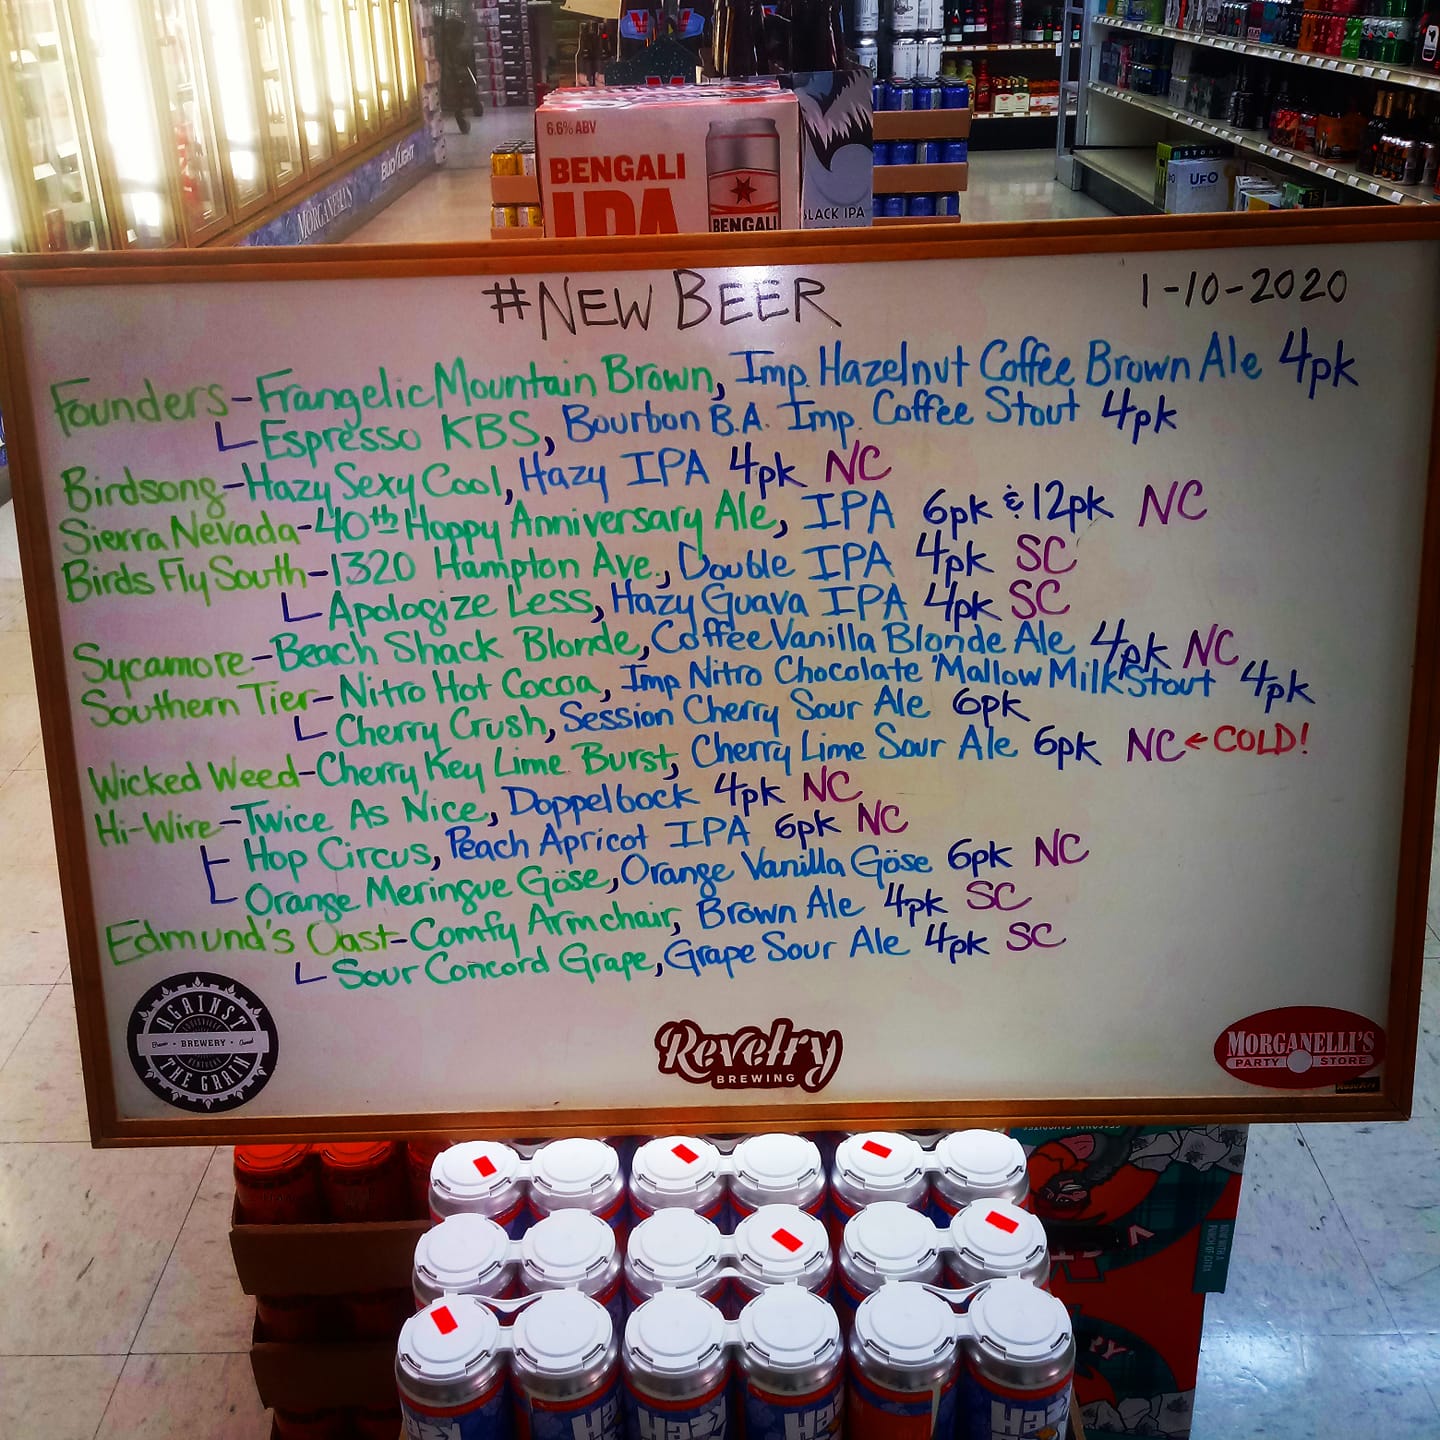 6.6% ABV
BENGALI
IPA
BENGALI
BLACK IPA
MORGANELLI'S
BUD LIGHT
STONE
UFO
#NEW BEER 1-10-2020
Founders-Frangelic Mountain Brown, Imp. Hazelnut Coffee Brown Ale 4pk
Espresso KBS, Bourbon B.A. Imp. Coffee Stout 4pk
Birdsong-Hazy Sexy Cool, Hazy IPA 4pk NC
Sierra Nevada-40th Hoppy Anniversary Ale, IPA 6pk & 12pk NC
Birds Fly South-1320 Hampton Ave., Double IPA 4pk SC
Apologize Less, Hazy Guava IPA 4pk SC
Sycamore-Beach Shack Blonde, Coffee Vanilla Blonde Ale 4pk NC
Southern Tier-Nitro Hot Cocoa, Imp Nitro Chocolate 'Mallow Milk Stout 4pk
Cherry Crush, Session Cherry Sour Ale 6pk
Wicked Weed-Cherry Key Lime Burst, Cherry Lime Sour Ale 6pk NC ← COLD!
Hi-Wire-Twice As Nice, Doppelbock 4pk NC
Hop Circus, Peach Apricot IPA 6pk NC
Orange Meringue Göse, Orange Vanilla Göse 6pk NC
Edmund's Oast-Comfy Armchair, Brown Ale 4pk SC
Sour Concord Grape, Grape Sour Ale 4pk SC
AGAINST
LOUISVILLE
BREWERY
KENTUCKY
THE GRAIN
Revelry
BREWING
MORGANELLI'S
PARTY STORE
HAZY
HAZY
HAZY
HAZY